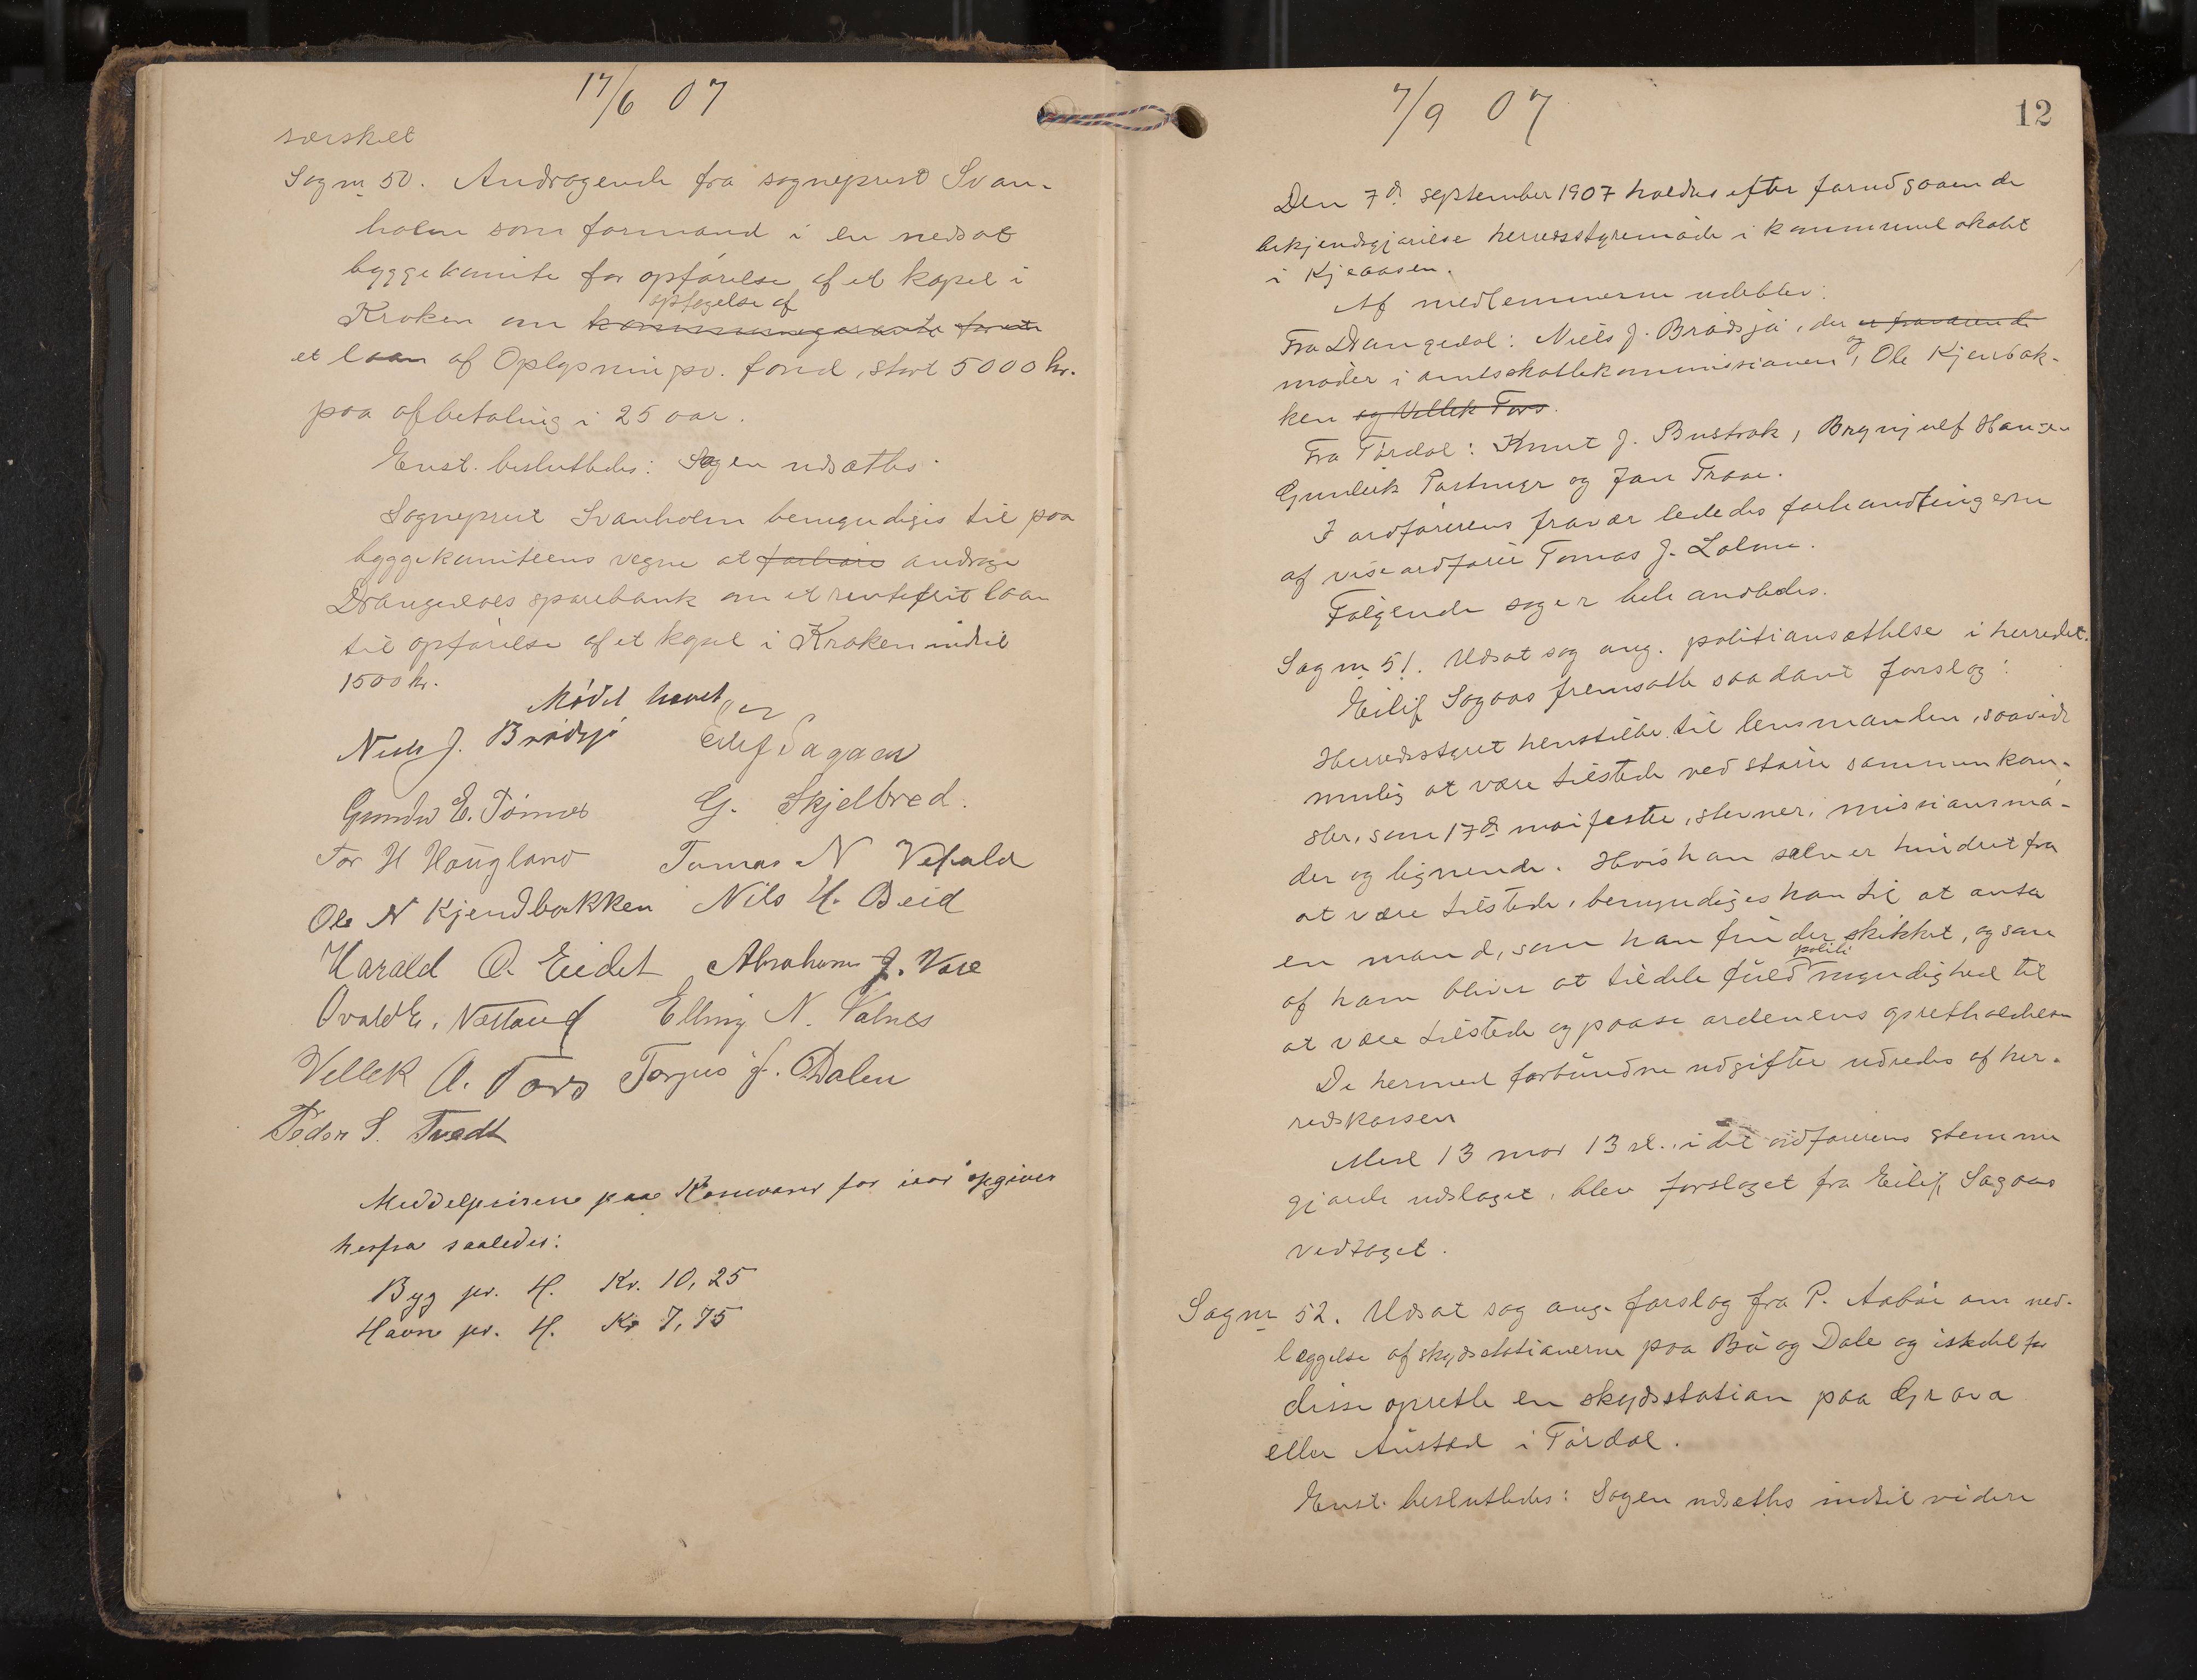 17/6 07
særskilt
Sag nr 50. Andragende fra sogneprest Svan-
holm som formand i en nedsat
byggekomite for opførelse af et kapel i
optagelse af
Kroken om kommunegaranti for et
et laan af Oplysningsv. fond, stort 5000 kr.
paa afbetaling i 25 aar.
Enst. besluttedes: Sagen udsættes.
Sogneprest Svanholm bemyndiges til paa
byggekomiteens vegne at andrage
Drangedals sparebank om et rentefrit laan
til opførelse af et kapel i Kroken indtil
1500 kr.
Mødet hævet
Niels J. Brødsjø Eilif Sagaas
Gunder E. Tørnes G. Skjelbred.
Tor H Haugland Tomas N Vefald
Ole N Kjendbakken Nils H. Beid
Harald O. Eidet Abraham J. Vase
Ovald E. Nætland Elling N. Valnes
Vellek A. Tors Torjus J. Dalen
Peder S. Tvedt
Middelprisene paa Kornvarer for iaar opgives
herfra saaledes:
Byg pr. H. Kr. 10,25
Havre pr. H. Kr 7,75
7/9 07
12
Den 7de september 1907 holdtes efter forudgaaende
bekjendtgjørelse herredsstyremøde i kommunelokalet
i Kjeaasen.
Af medlemmerne udeblev:
Fra Drangedal: Niels J. Brødsjø, der er fraværende
møder i amtsskattekommissionen og, Ole Kjenbak-
ken og Vellek Tors.
Fra Tørdal: Knut J. Bustrak, Brynjulf Hansen
Gunleik Tortmyr og Jan Traae.
I ordførerens fravær lededes forhandlingerne
af viseordfører Tomas J. Lolme.
Følgende sager behandledes.
Sag nr 51. Udsat sag ang. politiansættelse i herredet.
Eilif Sagaas fremsatte saadant forslag:
Herredsstyret henstiller til lensmanden, saavidt
mulig at være tilstede ved større sammenkom-
ster, som 17de maifester, stevner, missionsmø-
der og lignende. Hvis han selv er hindret fra
at være tilstede, bemyndiges han til at antа
en mand, som han finder skikket, og som
politi
af ham bliver at tildele fuld myndighed til
at være tilstede og paase ordenens opretholdelse
De hermed forbundne udgifter udredes af her-
redskassen
Med 13 mod 13 st., idet ordførerens stemme
gjorde udslaget, blev forslaget fra Eilif Sagaas
vedtaget.
Sag nr 52. Udsat sag ang. forslag fra P. Aabøe om ned-
læggelse af skydsstationerne paa Bø og Dale og istedet for
disse oprette en skydsstation paa Grava
eller Austad i Tørdal.
Enst. besluttedes: Sagen udsættes indtil videre